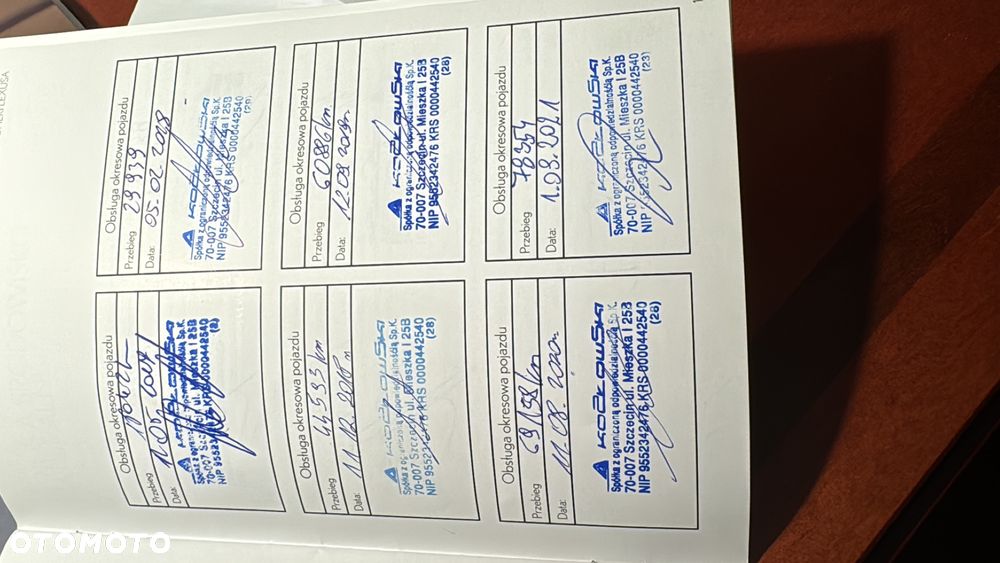 Obsługa okresowa pojazdu
Przebieg
Data:
Spółka z ograniczoną odpowiedzialnością Sp.K.
70-007 Szczecin ul. Mieszka I 25B
Obsługa okresowa pojazdu
Przebieg 29 939
Data: 05.02.2018
KOZŁOWSKI
Spółka z ograniczoną odpowiedzialnością Sp.K.
70-007 Szczecin ul. Mieszka I 25B
NIP 9552342476 KRS 0000442540
Obsługa okresowa pojazdu
Przebieg
Data: 11.12.2018
KOZŁOWSKI
Spółka z ograniczoną odpowiedzialnością Sp.K.
70-007 Szczecin ul. Mieszka I 25B
NIP 9552342476 KRS 0000442540
(28)
Obsługa okresowa pojazdu
Przebieg 60886 km
Data: 12.09.2019
KOZŁOWSKI
Spółka z ograniczoną odpowiedzialnością Sp.K.
70-007 Szczecin ul. Mieszka I 25B
NIP 9552342476 KRS 0000442540
(28)
Obsługa okresowa pojazdu
Przebieg 69198 km
Data: 11.08.2020
KOZŁOWSKI
Spółka z ograniczoną odpowiedzialnością Sp.K.
70-007 Szczecin ul. Mieszka I 25B
NIP 9552342476 KRS 0000442540
(28)
Obsługa okresowa pojazdu
Przebieg 78364
Data: 1.09.2021
KOZŁOWSKI
Spółka z ograniczoną odpowiedzialnością Sp.K.
70-007 Szczecin ul. Mieszka I 25B
NIP 9552342476 KRS 0000442540
(23)
OTOMOTO